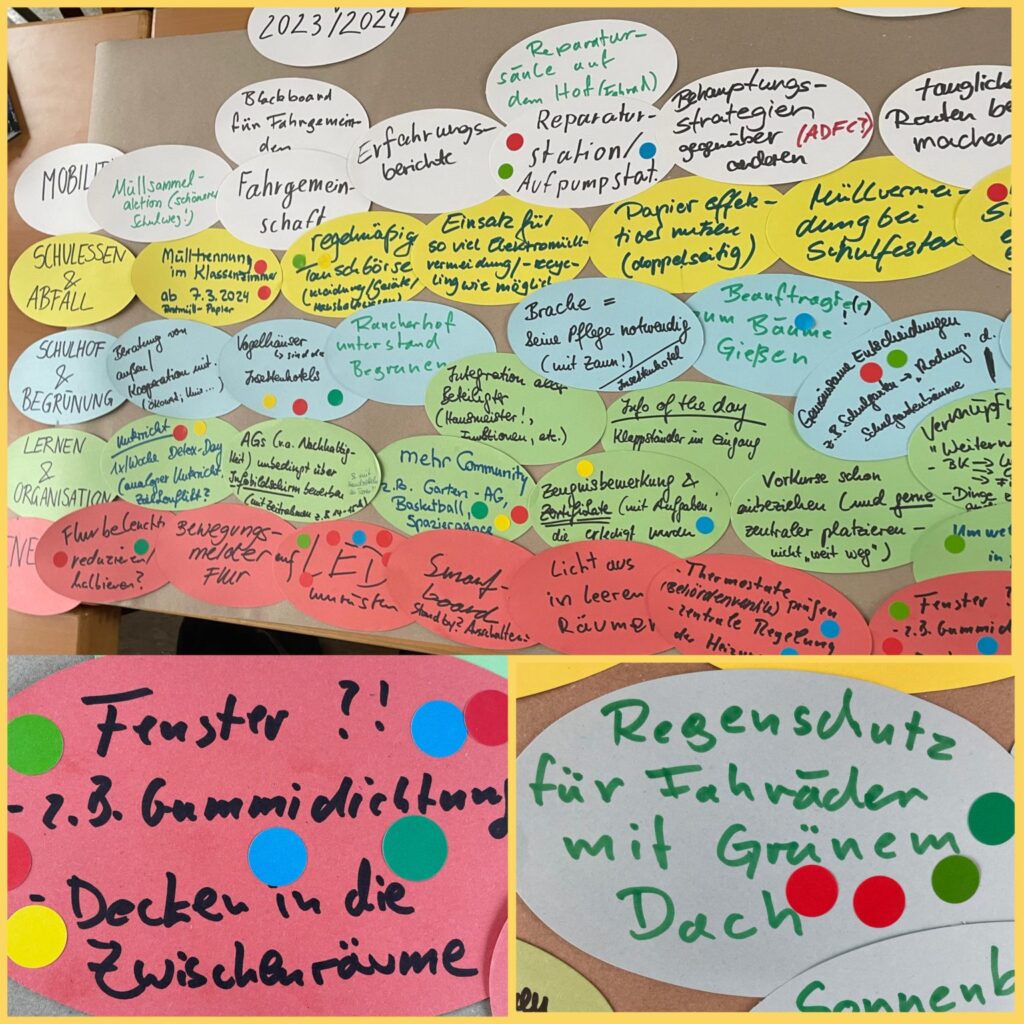 2023/2024
Reparatur-
säule auf
dem Hof (Fahrrad)
Blackboard
für Fahrgemein-
den
Erfahrungs-
berichte
Reparatur-
station/
Aufpumpstat.
Behauptungs-
strategien
gegenüber
anderen
(ADFC?)
tauglich
Routen be
machen
MOBILIT
Müllsammel-
aktion (schöner
Schulweg!)
Fahrgemein-
schaft
SCHULESSEN
&
ABFALL
Mülltrennung
im Klassenzimmer
ab 7.3.2024
Restmüll-Papier
regelmäßig
Tauschbörse
(Kleidung/Geräte/
Einsatz für
so viel Elektromüll-
vermeidung/-recyc-
ling wie möglich
Papier effek-
tives nutzen
(doppelseitig)
Müllvermei-
dung bei
Schulfesten
SCHULHOF
&
BEGRÜNUNG
Beratung von
außen/
Kooperation mit:
(Ökowerk, Uni...)
Vogelhäuser
Insektenhotels
Raucherhof
unterstand
Begrünen
Brache =
Seine Pflege notwendig
(mit Zaun!)
Insektenhotel
Beauftragte(r)
zum Bäume
Gießen
!
Gemeinsame Entscheidungen
z.B. Schulgarten → "Rodung" d.
Schulgartenbäume
LERNEN
&
ORGANISATION
Unterricht
1x/Woche Detox-Day
(analoger Unterricht,
AGs (v.a. Nachhaltig-
keit) unbedingt über
Infobildschirm bewerben
Integration aller
Beteiligter
(Hausmeister!,
Funktionen, etc.)
mehr Community
z.B. Garten-AG,
Basketball,
Spaziergänge
Info of the day
Klappständer im Eingang
Zeugnisbemerkung &
Zertifikate (mit Aufgaben,
die erledigt wurden
Vorkurse schon
einbeziehen (und gerne
zentraler platzieren –
nicht "weit weg")
Verknüpfu
- "Weitern
- BK
- Dinge
Umwelt
in
Flurbeleucht
reduzieren/
halbieren?
Bewegungs-
melder auf
Flur
LED
umrüsten
Smart-
board
Standby? Ausschalten!
Licht aus
in leeren
Räumen
- Thermostate
(Behördenventile) prüfen
- zentrale Regelung
der Heizun
- Fenster ?
- z.B. Gummidich
Fenster ?!
- z.B. Gummidichtung
- Decken in die
Zwischenräume
Regenschutz
für Fahräder
mit Grünem
Dach
Sonnenb